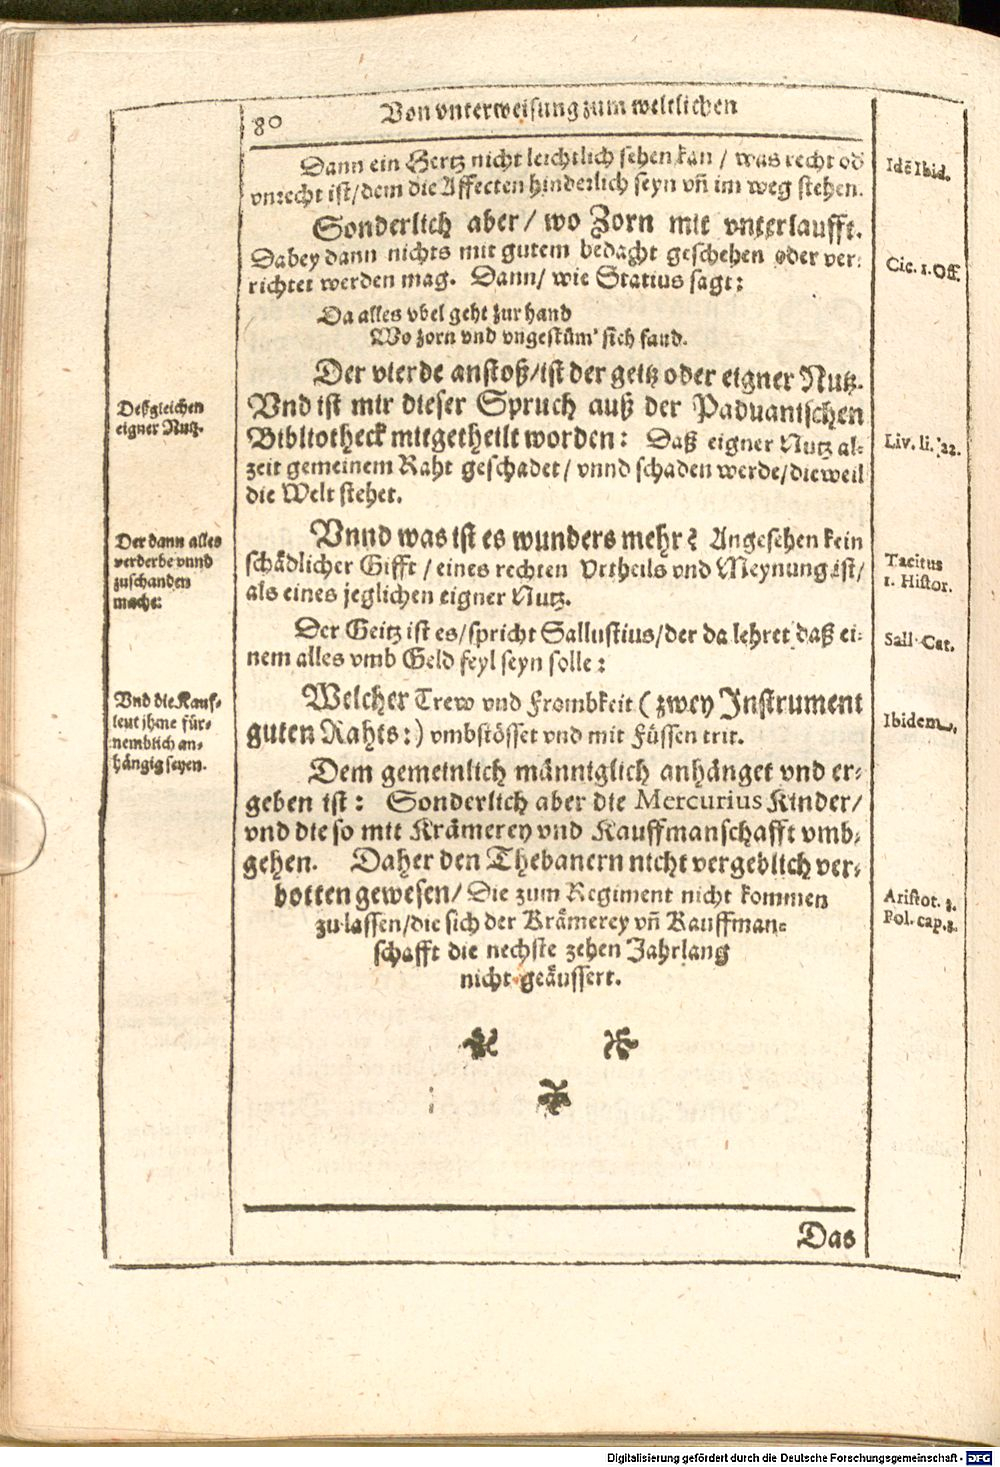 80
Von vnterweisung zum weltlichen
Dann ein Hertz nicht leichtlich sehen kan / was recht od
vnrecht ist/dem die Affecten hinderlich seyn vñ im weg stehen.
Idē Ibid.
Sonderlich aber/ wo Zorn mit vnterlaufft.
Dabey dann nichts mit gutem bedacht geschehen oder ver-
richtet werden mag. Dann/ wie Statius sagt:
Cic. 1. Off.
Da alles vbel geht zur hand
Wo zorn vnd vngestüm' sich fand.
Der vierde anstoß/ist der geitz oder eigner Nutz.
Vnd ist mir dieser Spruch auß der Paduanischen
Bibliotheck mitgetheilt worden: Daß eigner Nutz al-
zeit gemeinem Raht geschadet/ vnnd schaden werde/dieweil
die Welt stehet.
Deßgleichen
eigner Nutz.
Liv. li. 22.
Vnnd was ist es wunders mehr? Angesehen kein
schädlicher Gifft / eines rechten Vrtheils vnd Meynung ist/
als eines jeglichen eigner Nutz.
Der dann alles
verderbe vnnd
zuschanden
mache:
Tacitus
1. Histor.
Der Geitz ist es/spricht Sallustius/der da lehret daß ei-
nem alles vmb Geld feyl seyn solle:
Sall Cat.
Welcher Trew vnd Frombkeit ( zwey Instrument
guten Rahts:) vmbstösset vnd mit Füssen trit.
Vnd die Kauf-
leut jhme für-
nemblich an-
hängig seyen.
Ibidem.
Dem gemeinlich männiglich anhänget vnd er-
geben ist: Sonderlich aber die Mercurius Kinder/
vnd die so mit Krämerey vnd Kauffmanschafft vmb-
gehen. Daher den Thebanern nicht vergeblich ver-
botten gewesen/ Die zum Regiment nicht kommen
zu lassen/die sich der Krämerey vñ Kauffman-
schafft die nechste zehen Jahrlang
nicht geäussert.
Aristot. 3.
Pol. cap. 3.
Das
Digitalisierung gefördert durch die Deutsche Forschungsgemeinschaft - DFG